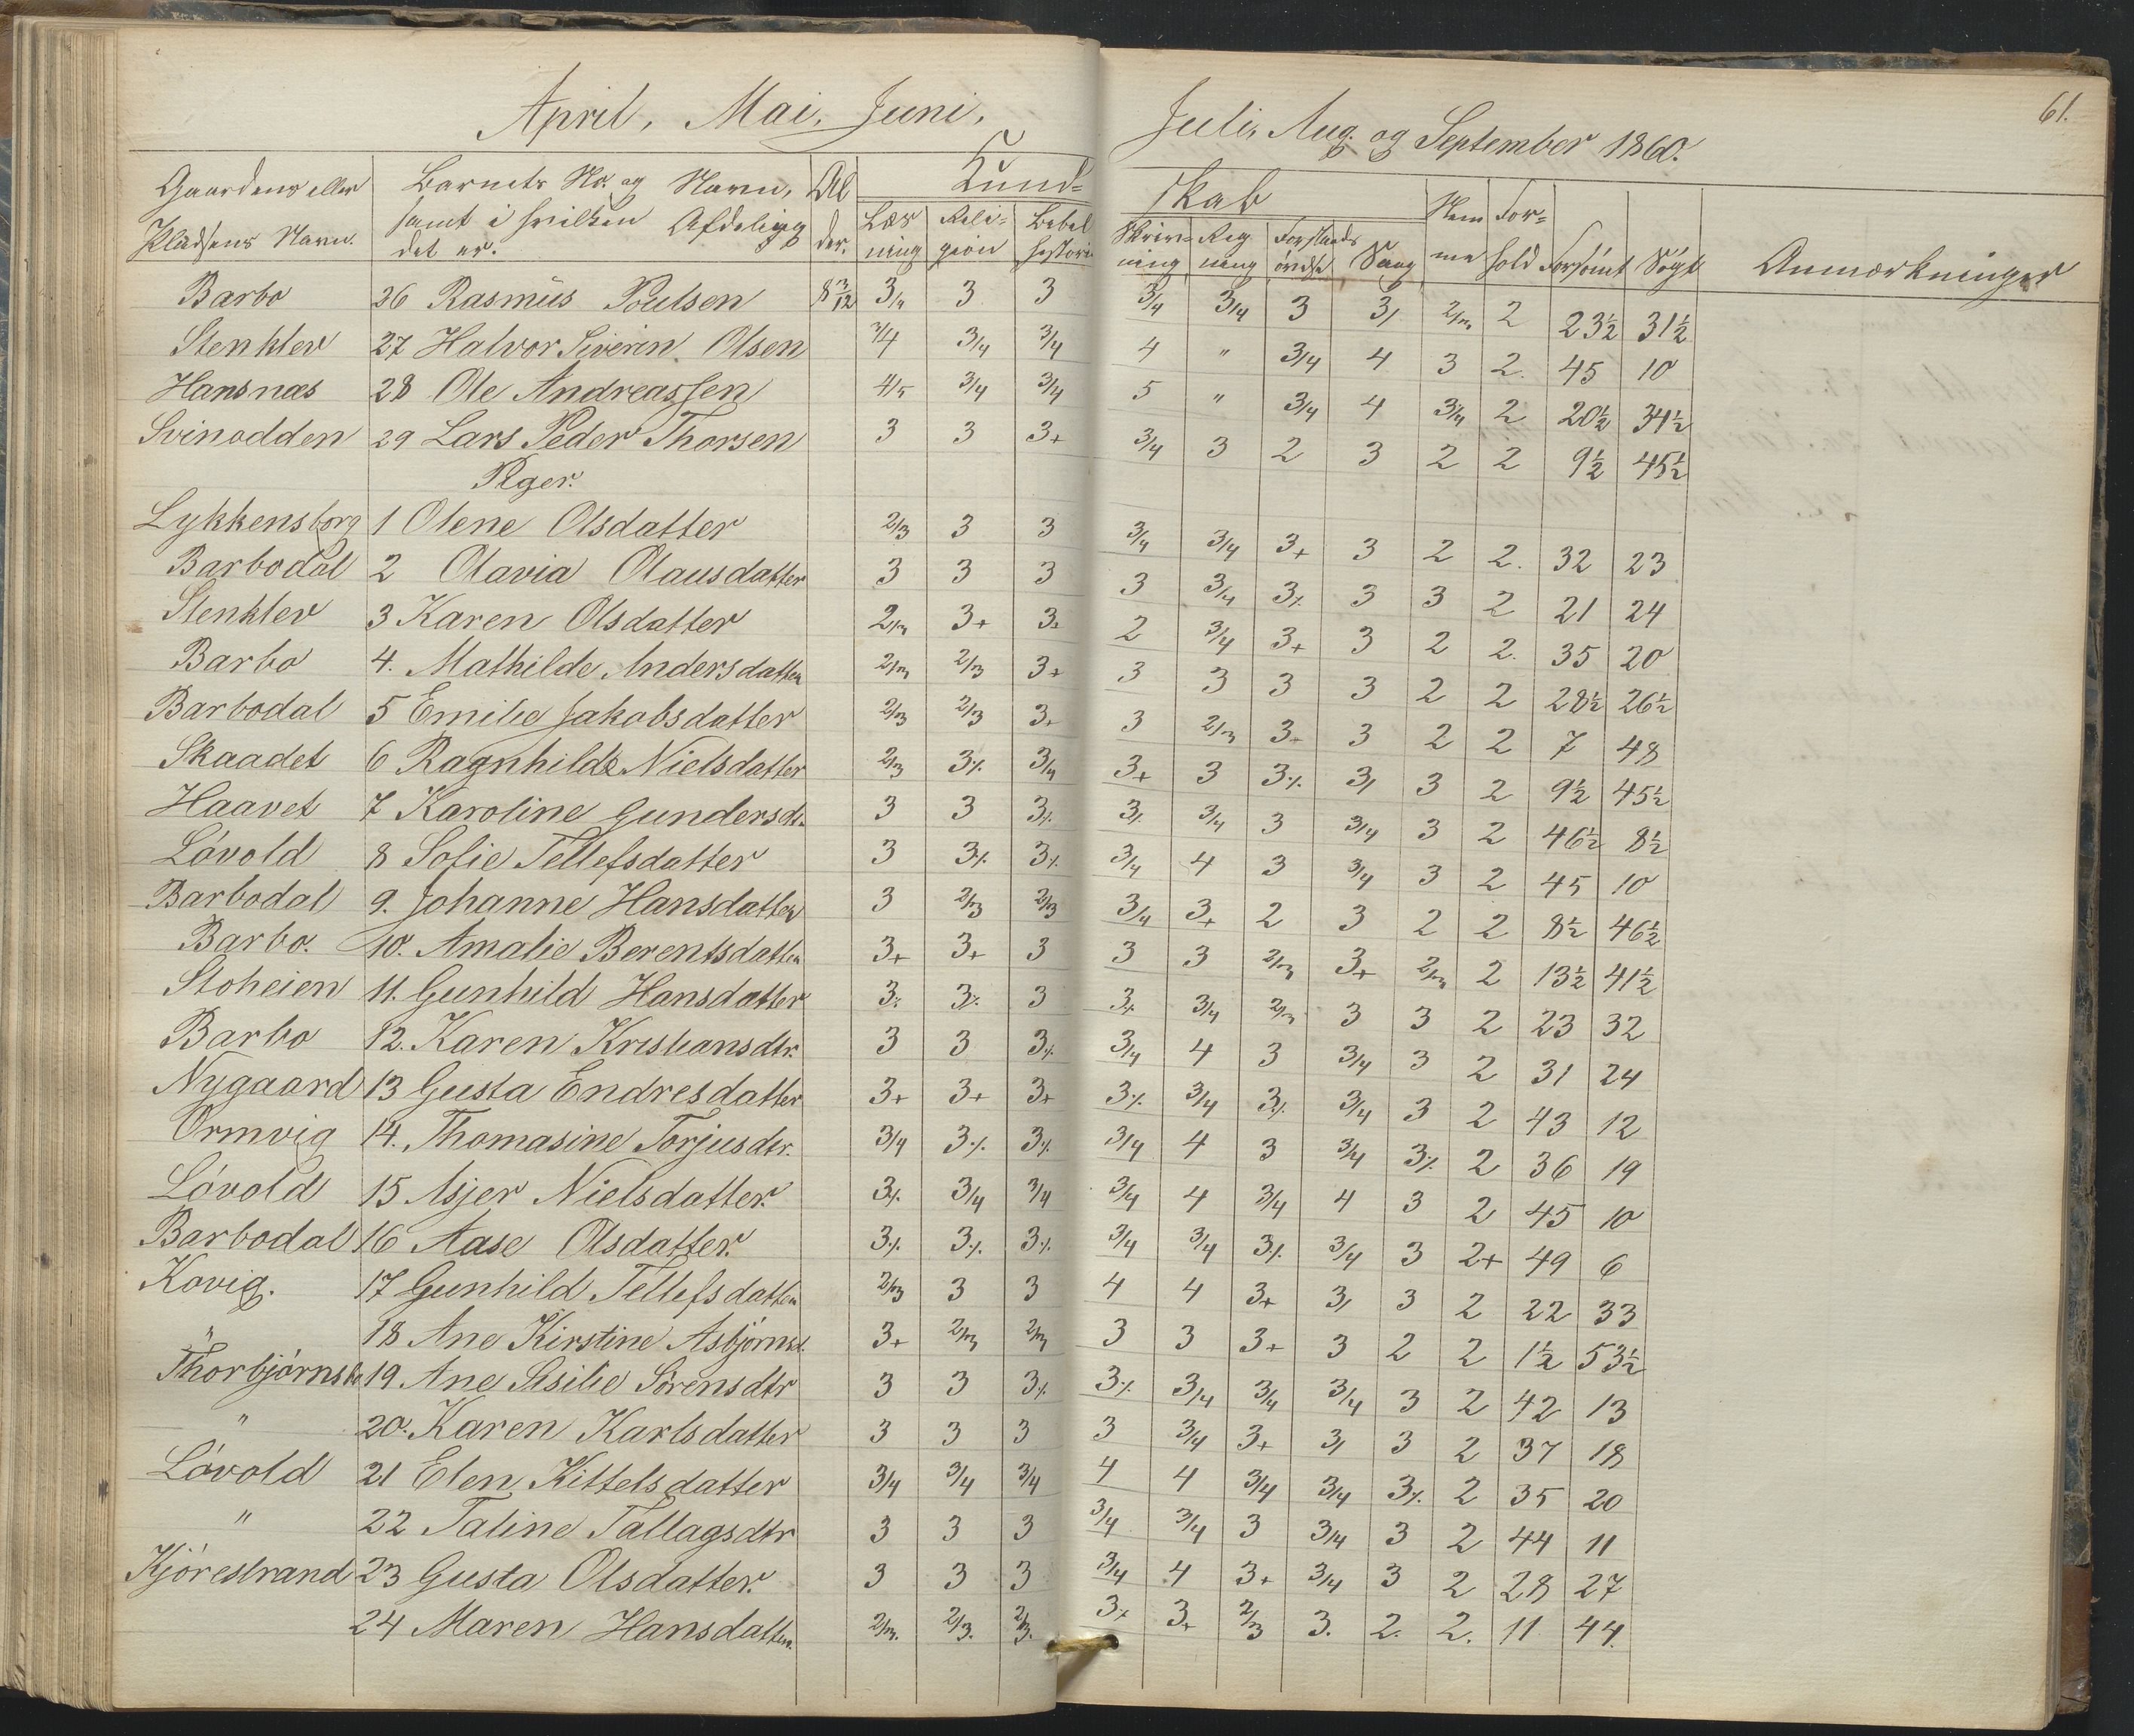 April, Mai, Juni,
Juli, Aug. og September 1860.
61.
Gaardens eller
Pladsens Navn.
Barnets No. og Navn,
samt i hvilken Afdeling
det er.
Al
der.
Kund=
skab
Læs
ning
Reli=
gion
Bibel
historie
Skriv=
ning
Reg
ning
Forstands
øvelse
Sang
Nem
me
For=
hold
Forsömt
Sögt
Anmærkninger
Barbo 26 Rasmus Poulsen 8 3/12 3/4 3 3 3/4 3/4 3 3/ 2/3 2 23½ 31½
Stenklev 27 Halvor Siverin Olsen 3/4 3/4 3/4 4 " 3/4 4 3 2. 45 10
Hansnæs 28 Ole Andreassen 4/5 3/4 3/4 5 " 3/4 4 3/4 2 20½ 34½
Svinodden 29 Lars Peder Thorsen 3 3 3+ 3/4 3 2 3 2 2 9½ 45½
Piger.
Lykkensborg 1 Olene Olsdatter 2/3 3 3 3/4 3/4 3+ 3 2 2. 32 23
Barbodal 2 Olavia Olausdatter 3 3 3 3 3/4 3⁒ 3 3 2 21 24
Stenklev 3 Karen Olsdatter 2/3 3+ 3+ 2 3/4 3+ 3 2 2. 35 20
Barbo 4. Mathilde Andersdatter 2/3 2/3 3+ 3 3 3 3 2 2 28½ 26½
Barbodal 5 Emilie Jakobsdatter 2/3 2/3 3+ 3 2/3 3+ 3 2 2 7 48
Skaadet 6 Ragnhilde Nielsdatter 2/3 3⁒ 3/4 3+ 3 3⁒ 3/ 3 2 9½ 45½
Haavet 7 Karoline Gundersdr. 3 3 3⁒ 3⁒ 3/4 3 3/4 3 2 46½ 8½
Lövold 8 Sofie Tellefsdatter 3 3⁒ 3⁒ 3/4 4 3 3/4 3 2 45 10
Barbodal 9. Johanne Hansdatter 3 2/3 2/3 3/4 3+ 2 3 2 2 8½ 46½
Barbo. 10. Amalie Berentsdatter 3+ 3+ 3 3 3 2/3 3+ 2/3 2 13½ 41½
Stoheien 11. Gunhild Hansdatter 3⁒ 3⁒ 3 3⁒ 3/4 2/3 3 3 2 23 32
Barbo 12. Karen Kristiansdtr. 3 3 3⁒ 3/4 4 3 3/4 3 2 31 24
Nygaard 13 Gusta Endresdatter 3+ 3+ 3+ 3⁒ 3/4 3⁒ 3/4 3 2 43 12
Ormvig 14. Thomasine Torjusdtr. 3/4 3⁒ 3⁒ 3/4 4 3 3/4 3⁒ 2 36 19
Lövold 15 Asjer Nielsdatter. 3⁒ 3/4 3/4 3/4 4 3/4 4 3 2 45 10
Barbodal 16 Aase Olsdatter. 3⁒ 3⁒ 3⁒ 3/4 3/4 3⁒ 3/4 3 2+ 49 6
Kovig. 17 Gunhild Tellefsdatter 2/3 3 3 4 4 3+ 3/ 3 2 22 33
" 18 Ane Kirstine Asbjörnsd. 3+ 2/3 2/3 3 3 3+ 3 2 2 1½ 53½
Thorbjörnsbo 19 Ane Sisilie Sörensdtr 3 3 3⁒ 3⁒ 3/4 3/4 3/4 3 2 42 13
" 20. Karen Karlsdatter 3 3 3 3 3/4 3+ 3/ 3 2 37 18
Lövold 21 Elen Kittelsdatter 3/4 3/4 3/4 4 4 3/4 3/4 3⁒ 2 35 20
" 22 Taline Tallagsdtr 3 3 3 3/4 3/4 3 3/4 3 2 44 11
Kjörestrand 23 Gusta Olsdatter. 3 3 3 3/4 4 3+ 3/4 3 2 28 27
24 Maren Hansdatter. 2/3. 2/3. 2/3. 3+ 3+ 2/3 3. 2. 2. 11 44.